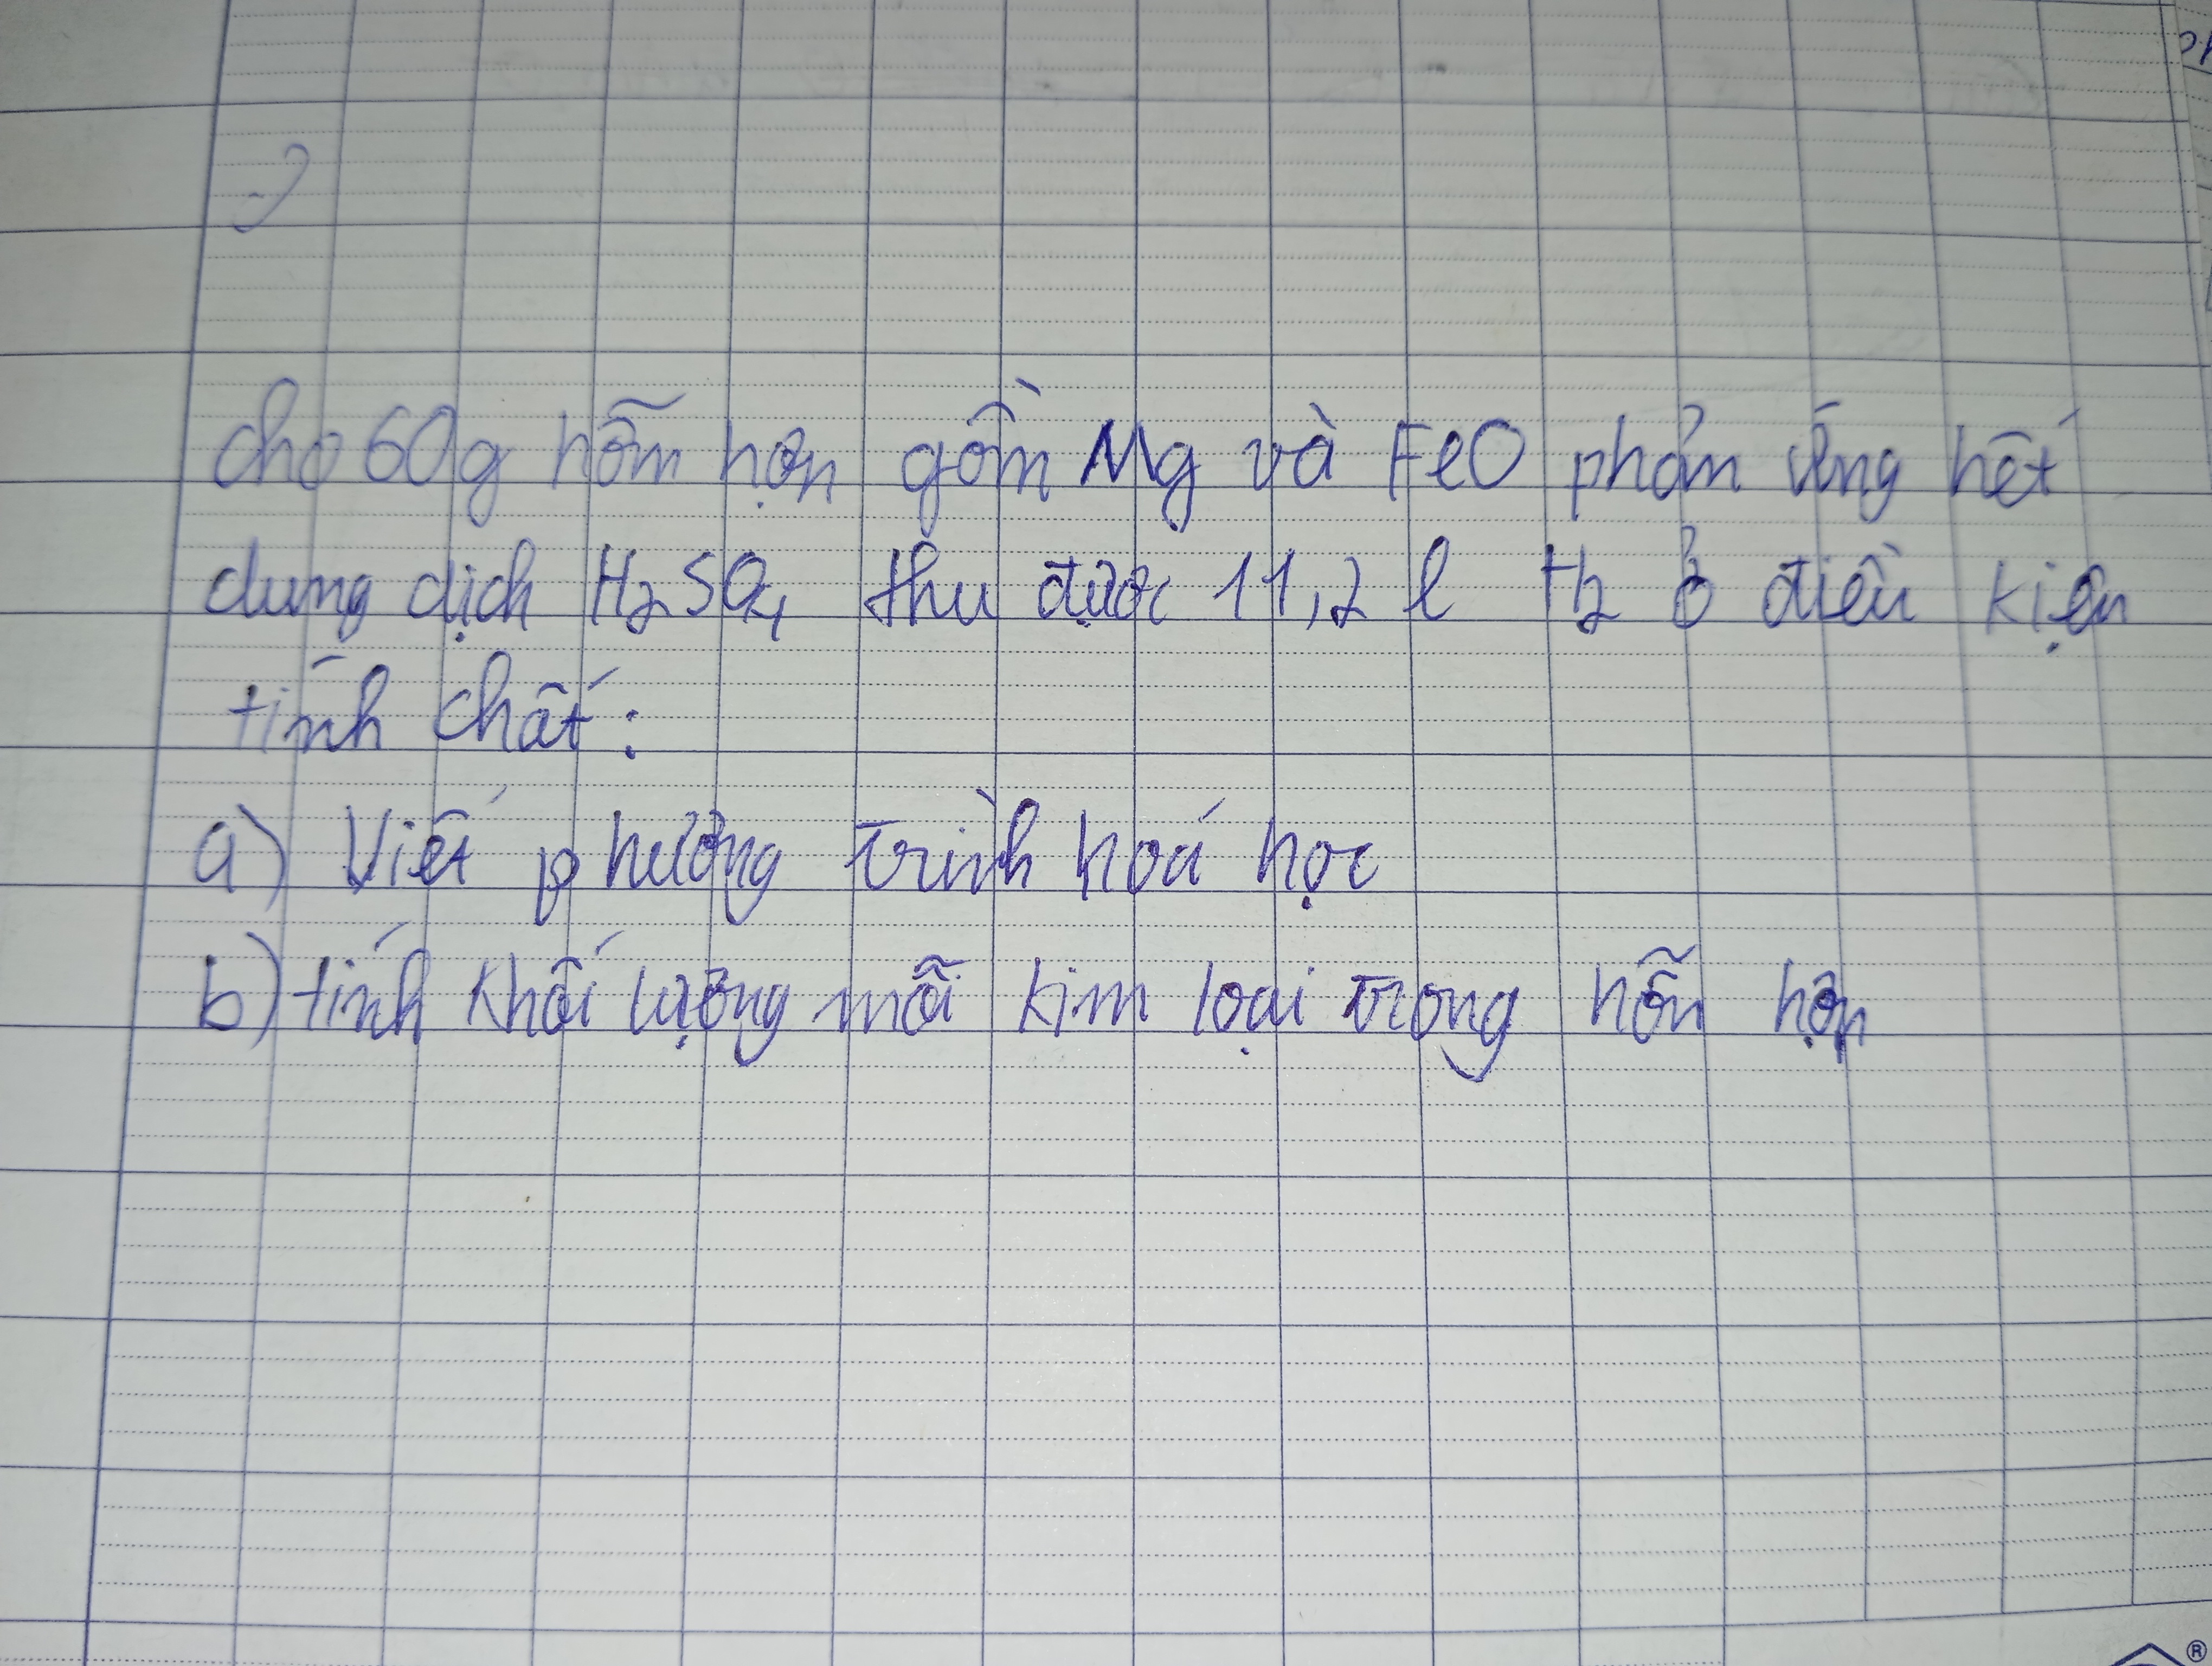 cho 60g hỗm hợp gồm Mg và FeO phản ứng hết
dung dịch H₂SO₄ thu được 11,2 l H₂ ở điều kiện
tính chất:
a) Viết phương trình hoá học
b) tính khối lượng mỗi kim loại trong hỗn hợp